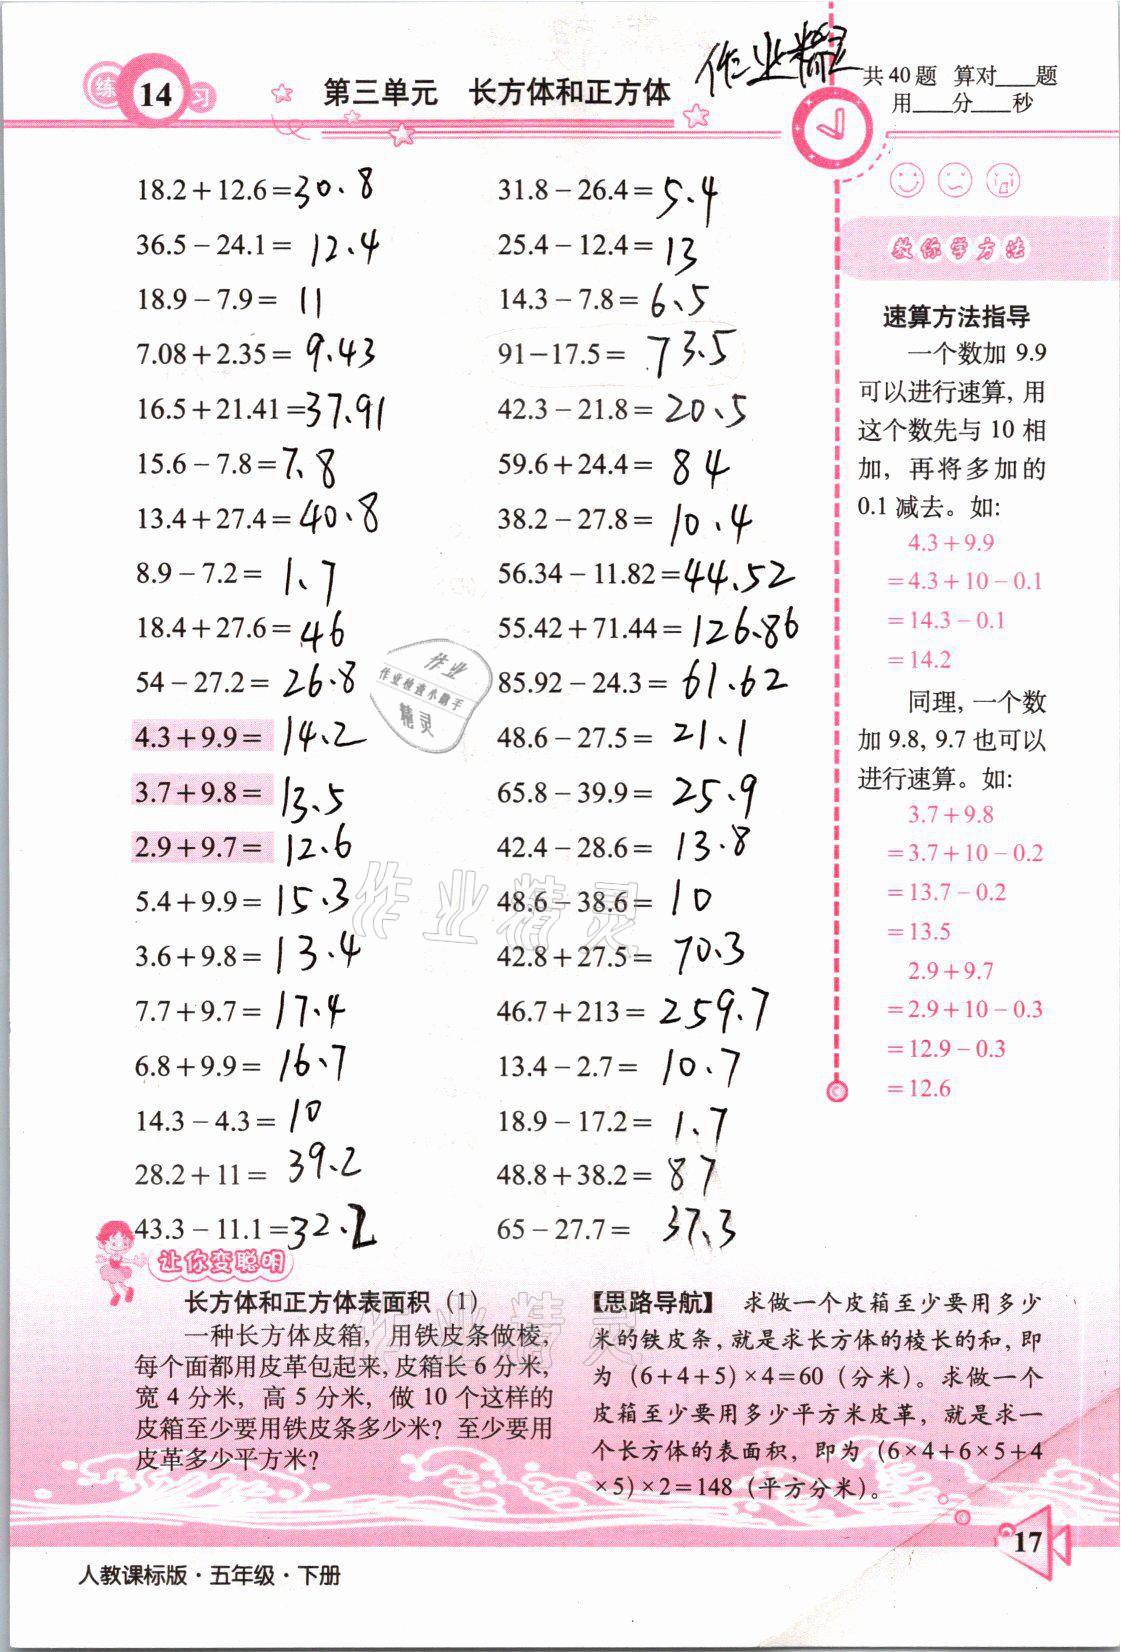 练 14 习
第三单元 长方体和正方体
作业精灵
共 40 题 算对___题
用___分___秒
18.2＋12.6＝30.8
36.5－24.1＝12.4
18.9－7.9＝11
7.08＋2.35＝9.43
16.5＋21.41＝37.91
15.6－7.8＝7.8
13.4＋27.4＝40.8
8.9－7.2＝1.7
18.4＋27.6＝46
54－27.2＝26.8
4.3＋9.9＝14.2
3.7＋9.8＝13.5
2.9＋9.7＝12.6
5.4＋9.9＝15.3
3.6＋9.8＝13.4
7.7＋9.7＝17.4
6.8＋9.9＝16.7
14.3－4.3＝10
28.2＋11＝39.2
43.3－11.1＝32.2
31.8－26.4＝5.4
25.4－12.4＝13
14.3－7.8＝6.5
91－17.5＝73.5
42.3－21.8＝20.5
59.6＋24.4＝84
38.2－27.8＝10.4
56.34－11.82＝44.52
55.42＋71.44＝126.86
85.92－24.3＝61.62
48.6－27.5＝21.1
65.8－39.9＝25.9
42.4－28.6＝13.8
48.6－38.6＝10
42.8＋27.5＝70.3
46.7＋213＝259.7
13.4－2.7＝10.7
18.9－17.2＝1.7
48.8＋38.2＝87
65－27.7＝37.3
教你学方法
速算方法指导
一个数加 9.9
可以进行速算, 用
这个数先与 10 相
加, 再将多加的
0.1 减去。如:
4.3＋9.9
＝4.3＋10－0.1
＝14.3－0.1
＝14.2
同理, 一个数
加 9.8, 9.7 也可以
进行速算。如:
3.7＋9.8
＝3.7＋10－0.2
＝13.7－0.2
＝13.5
2.9＋9.7
＝2.9＋10－0.3
＝12.9－0.3
＝12.6
作业
作业检查小助手
精灵
作业精灵
让你变聪明
长方体和正方体表面积（1）
一种长方体皮箱, 用铁皮条做棱,
每个面都用皮革包起来, 皮箱长 6 分米,
宽 4 分米, 高 5 分米, 做 10 个这样的
皮箱至少要用铁皮条多少米？至少要用
皮革多少平方米？
【思路导航】 求做一个皮箱至少要用多少
米的铁皮条, 就是求长方体的棱长的和, 即
为（6＋4＋5）×4＝60（分米）。求做一个
皮箱至少要用多少平方米皮革, 就是求一
个长方体的表面积, 即为（6×4＋6×5＋4
×5）×2＝148（平方分米）。
作业精灵
17
人教课标版·五年级·下册